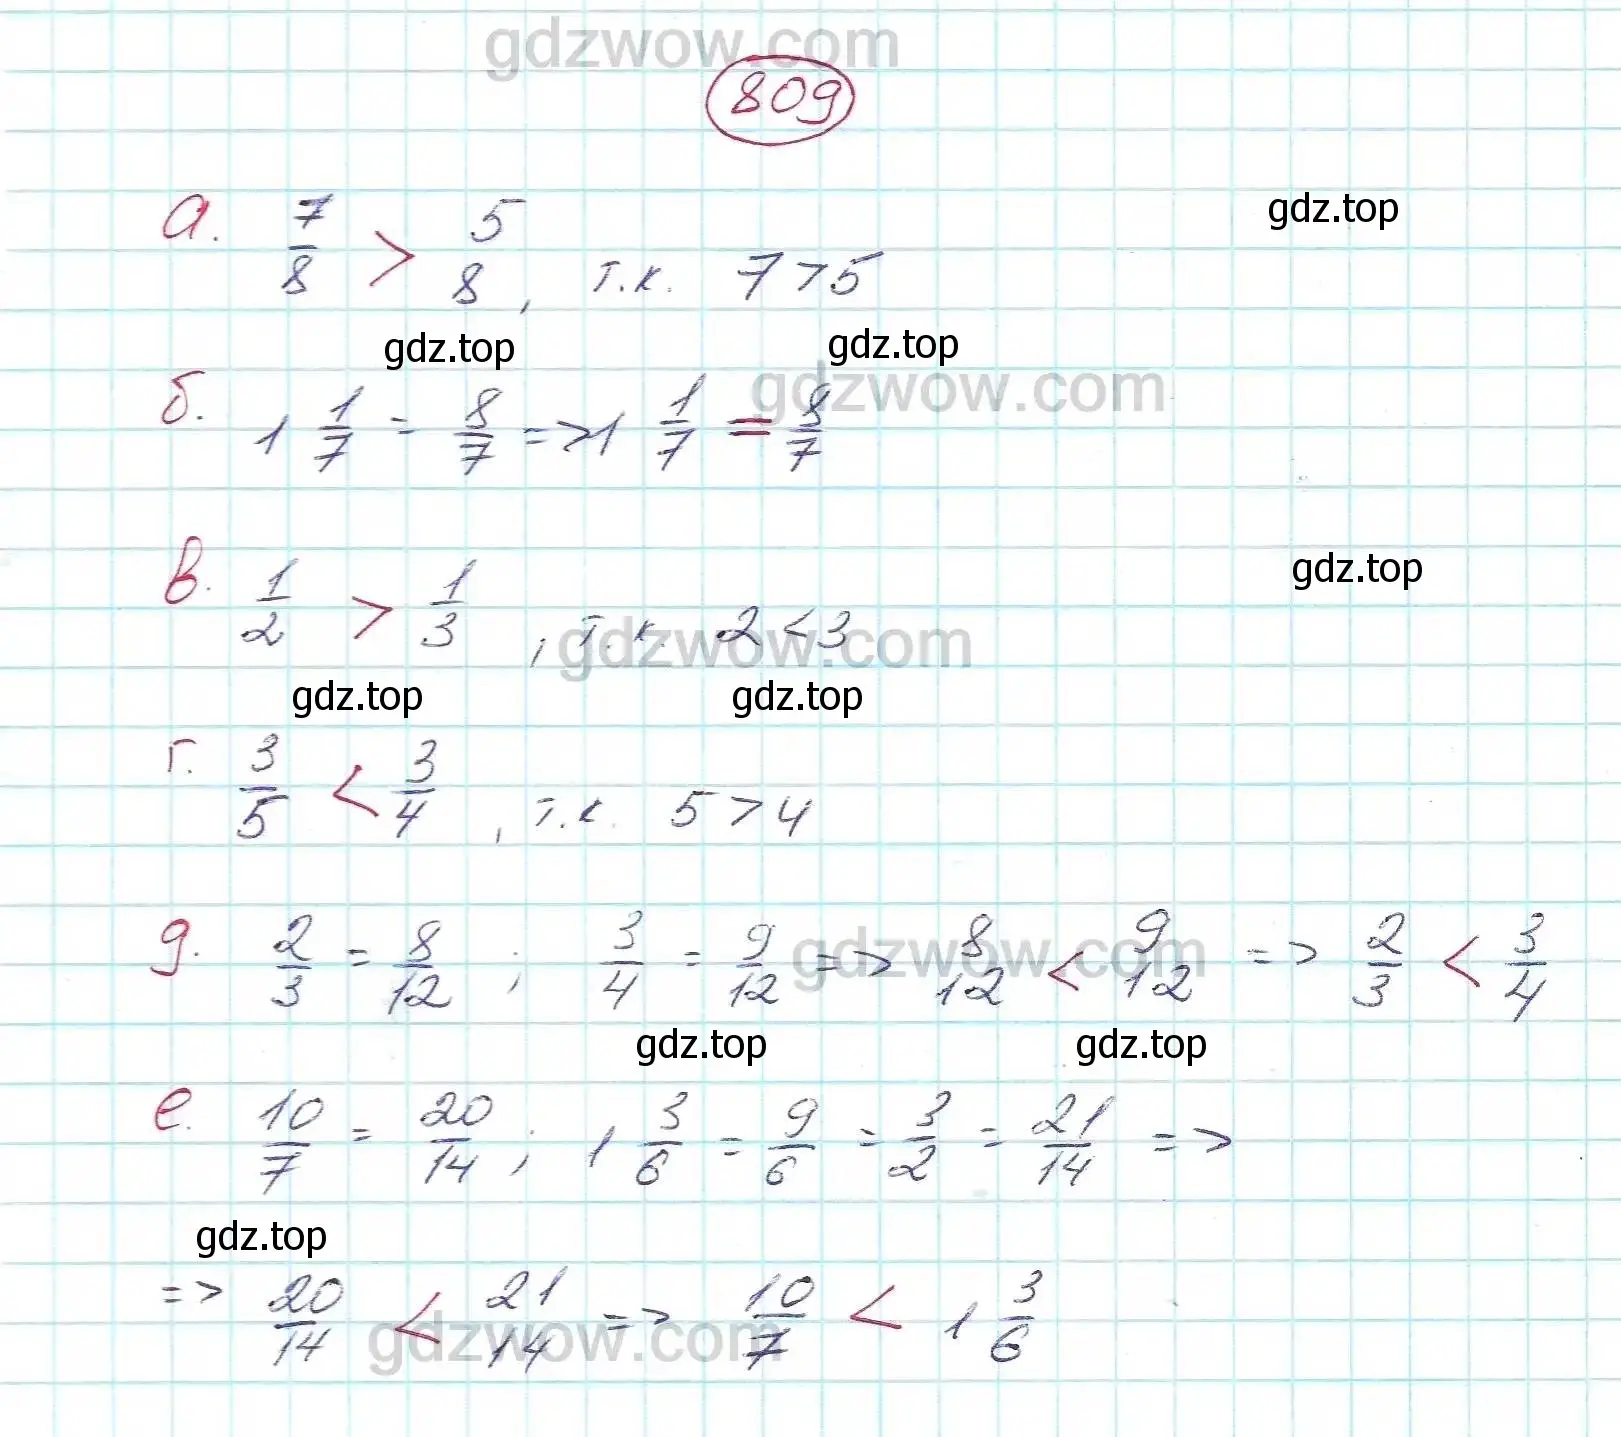 gdzwow.com
809
а. 7/8 > 5/8, т.к. 7>5
gdz.top
gdz.top
gdz.top
gdzwow.com
б. 1 1/7 = 8/7 => 1 1/7 = 8/7
в. 1/2 > 1/3, т.к. 2<3
gdz.top
gdzwow.com
gdz.top
gdz.top
г. 3/5 < 3/4, т.к. 5>4
д. 2/3 = 8/12; 3/4 = 9/12 => 8/12 < 9/12 => 2/3 < 3/4
gdzwow.com
gdz.top
gdz.top
е. 10/7 = 20/14; 1 3/6 = 9/6 = 3/2 = 21/14 =>
gdz.top
=> 20/14 < 21/14 => 10/7 < 1 3/6
gdzwow.com